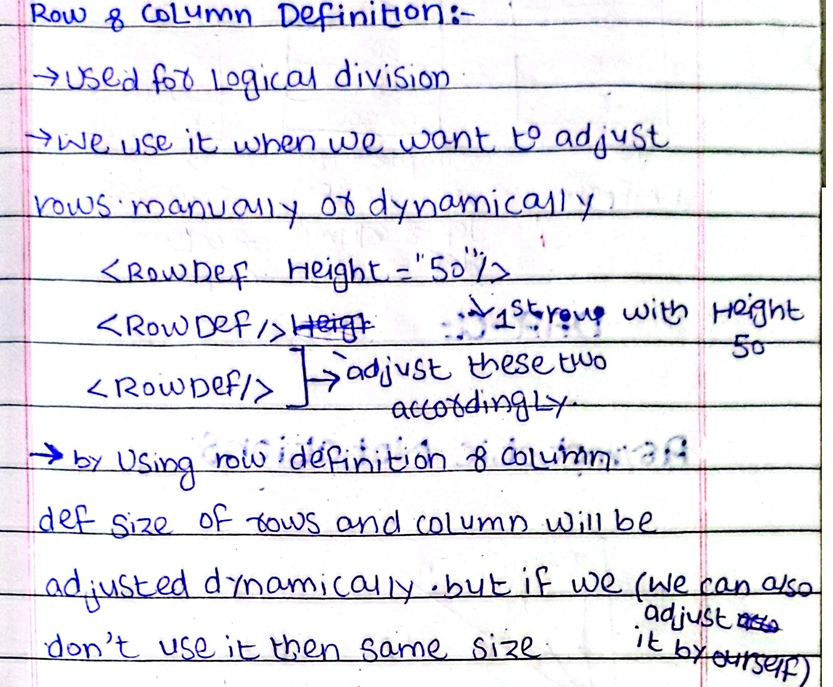 Row & Column Definition:-
→ used for Logical division
→ we use it when we want to adjust
rows manually or dynamically
<RowDef Height = "50"/>
<RowDef/> Heigt
→ 1st row with Height
50
<RowDef/>
→ adjust these two
accordingly.
→ by Using row definition & column
def size of rows and column will be
adjusted dynamically . but if we (we can also
adjust
it by ourself)
don't use it then same size